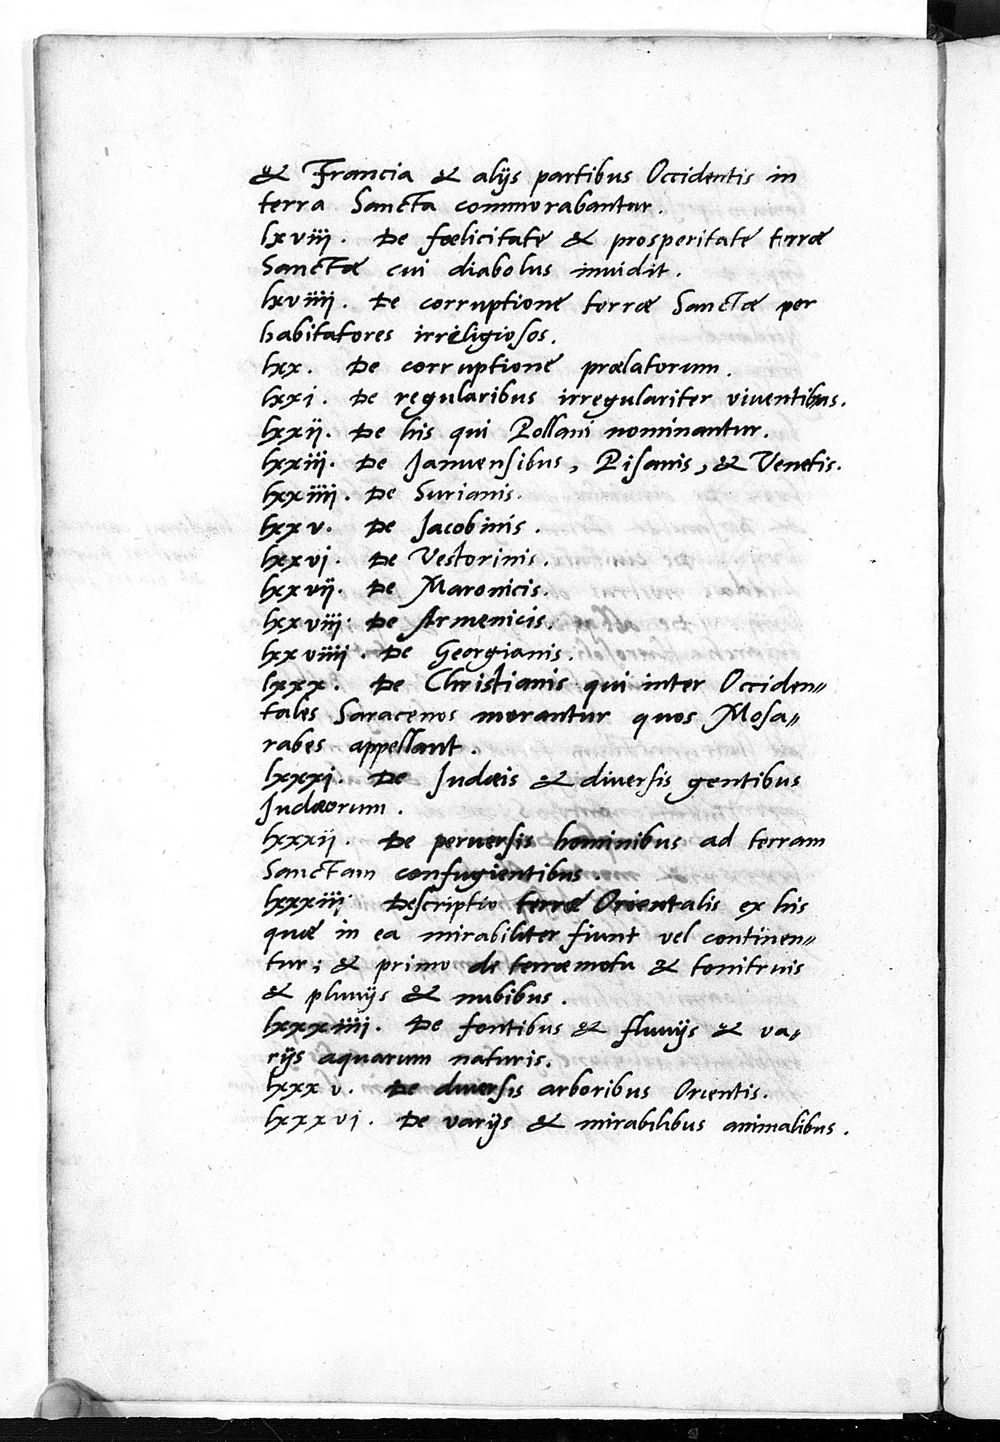 & Francia & alijs partibus Occidentis in
terra Sancta commorabantur.
lxviii. De fœlicitate & prosperitate terræ
Sanctæ cui diabolus inuidit.
lxviiii. De corruptione terræ Sanctæ per
habitatores irreligiosos.
lxx. De corruptione prælatorum.
lxxi. De regularibus irregulariter viuentibus.
lxxij. De his qui Pollani nominantur.
lxxiii. De Januensibus, Pisanis, & Venetis.
lxxiiii. De Surianis.
lxxv. De Jacobinis.
lxxvj. De Vestorinis.
lxxvij. De Maronicis.
lxxviii. De Armenicis.
lxxviiii. De Georgianis.
lxxx. De Christianis qui inter Occiden„
tales Saracenos morantur quos Mosa„
rabes appellant.
lxxxj. De Judæis & diuersis gentibus
Judæorum.
lxxxij. De peruersis hominibus ad terram
Sanctam confugientibus.
lxxxiij Descriptio terræ Orientalis ex his
quæ in ea mirabiliter fiunt vel continen„
tur; & primo de terræmotu & tonitruis
& pluuijs & nubibus.
lxxxiiii. De fontibus & fluuijs & va„
rijs aquarum naturis.
lxxxv. De diuersis arboribus Orientis.
lxxxvj. De varijs & mirabilibus animalibus.